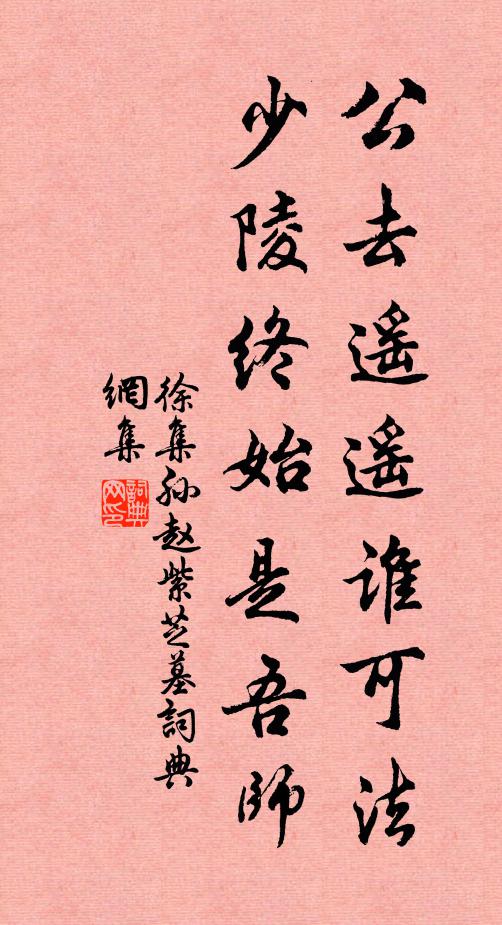 公去遥遥谁可法
少陵终始是吾師
徐集孙赵紫芝墓詞典
網集
詞典網印